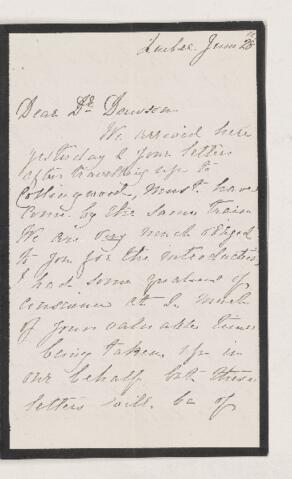 Quebec June 26th
Dear Dr. Dawson
We arrived here
yesterday & your letters
after travelling up to
Collingwood, must have
come by the same train
We are very much obliged
to you for the introductions,
I had some qualms of
conscience at so much
of your valuable time
being taken up in
our behalf but these
letters will be of